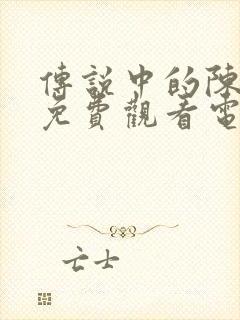 傳說中的陳
免費觀看電
亡士